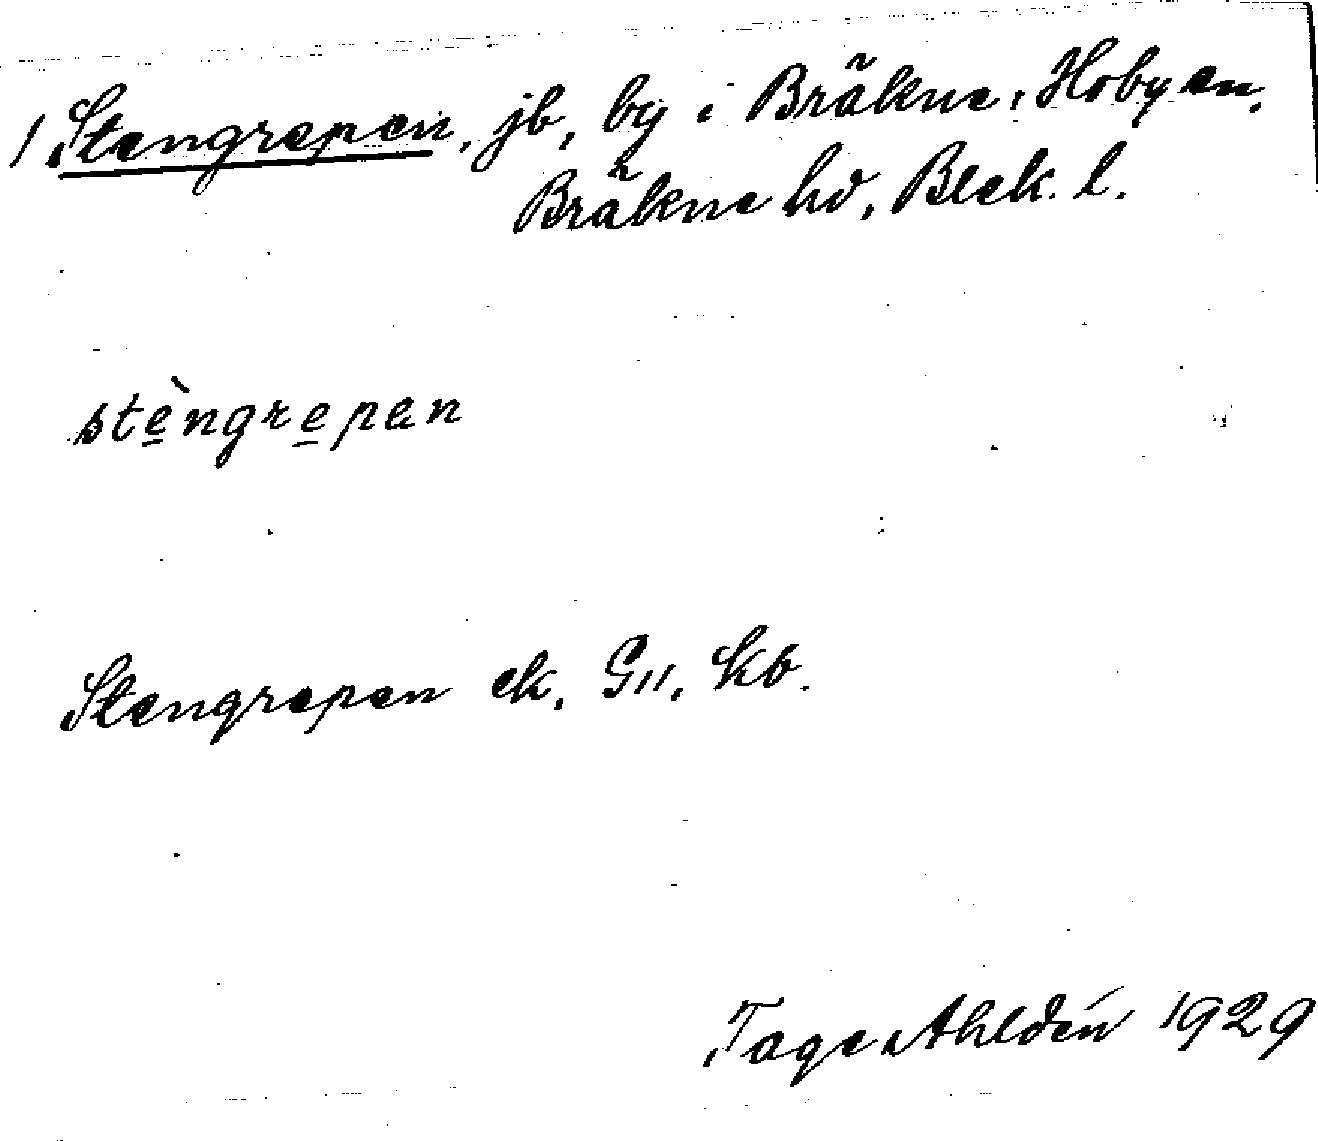 1 Stengrepen, jb, by i Bräkne-Hoby sn,
Bräkne hd, Blek. l.
stèngrepen
Stengrepen ek, G11, kb.
Tage Ahldén 1929